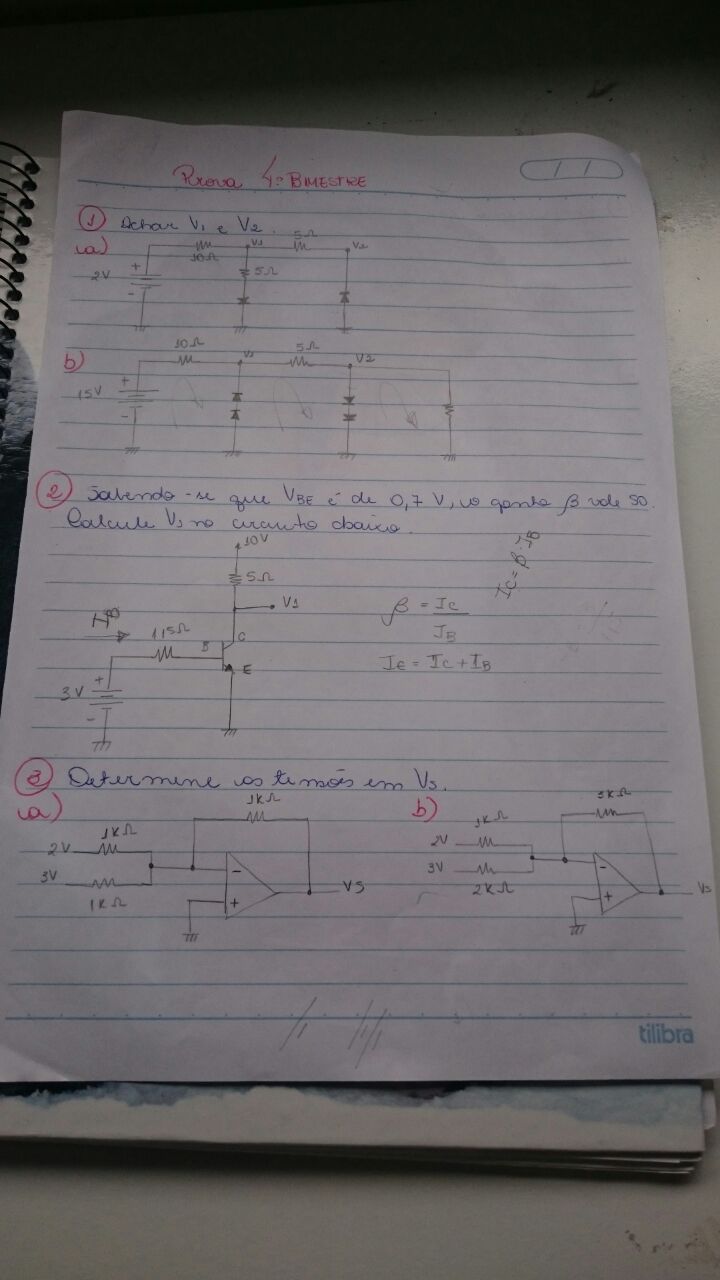 Prova 4º BIMESTRE
/ /
① Achar V1 e V2.
a)
10Ω V1 5Ω V2
2V + - 5Ω
b)
10Ω V1 5Ω V2
15V + -
② Sabendo-se que VBE é de 0,7 V, o ganho β vale 50.
Calcule V1 no circuito abaixo.
10V
5Ω
V1
IC = β.IB
β = IC / IB
IE = IC + IB
115Ω B C E
3V + -
③ Determine as tensões em Vs.
a)
1KΩ
2V 1KΩ
3V 1KΩ
- + VS
b)
3KΩ
2V 1KΩ
3V 2KΩ
- + Vs
tilibra